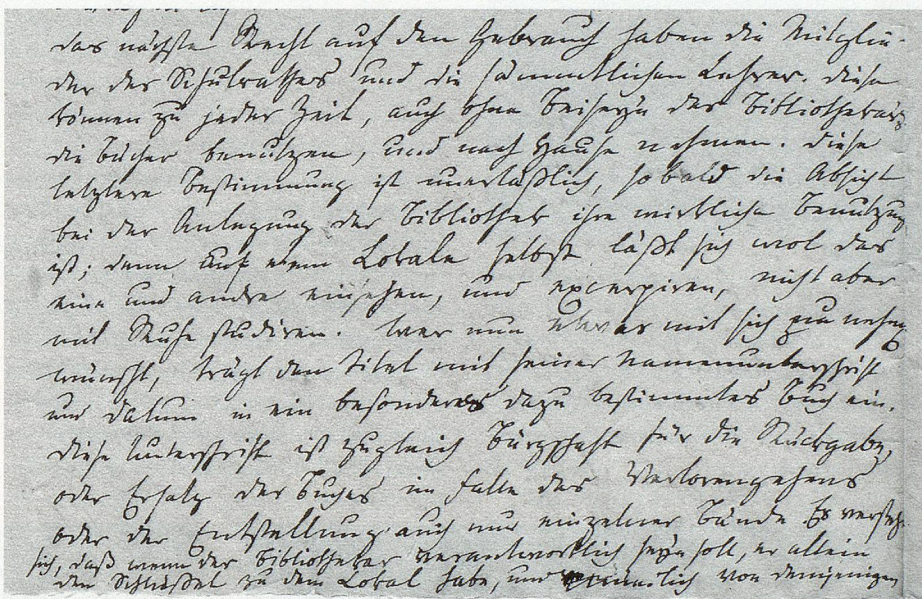 das nächste Recht auf den Gebrauch haben die Mitglie-
der des Schulrathes und die sämmtlichen Lehrer. Diese
können zu jeder Zeit, auch ohne Beiseyn des Bibliothekars
die Bücher benutzen, und nach Hause nehmen. Diese
letztere Bestimmung ist unerläßlich, sobald die Absicht
bei der Anlegung der Bibliothek ihre wirkliche Benutzung
ist; denn auf dem Lokale selbst läßt sich wol das
eine und andre einsehen, und excerpiren, nicht aber
mit Ruhe studiren. Wer nun etwas mit sich zu nehmen
wünscht, trägt den Titel mit seiner Namenunterschrift
und Datum in ein besonderes dazu bestimmtes Buch ein.
Diese Unterschrift ist zugleich Bürgschaft für die Rückgabe,
oder Ersatz des Buches im Falle des Verlorengehens
oder der Entstellung auch nur einzelner Bände Es versteht
sich, daß wenn der Bibliothekar verantwortlich seyn soll, er allein
den Schlüssel zu dem Lokal habe, und von demjenigen